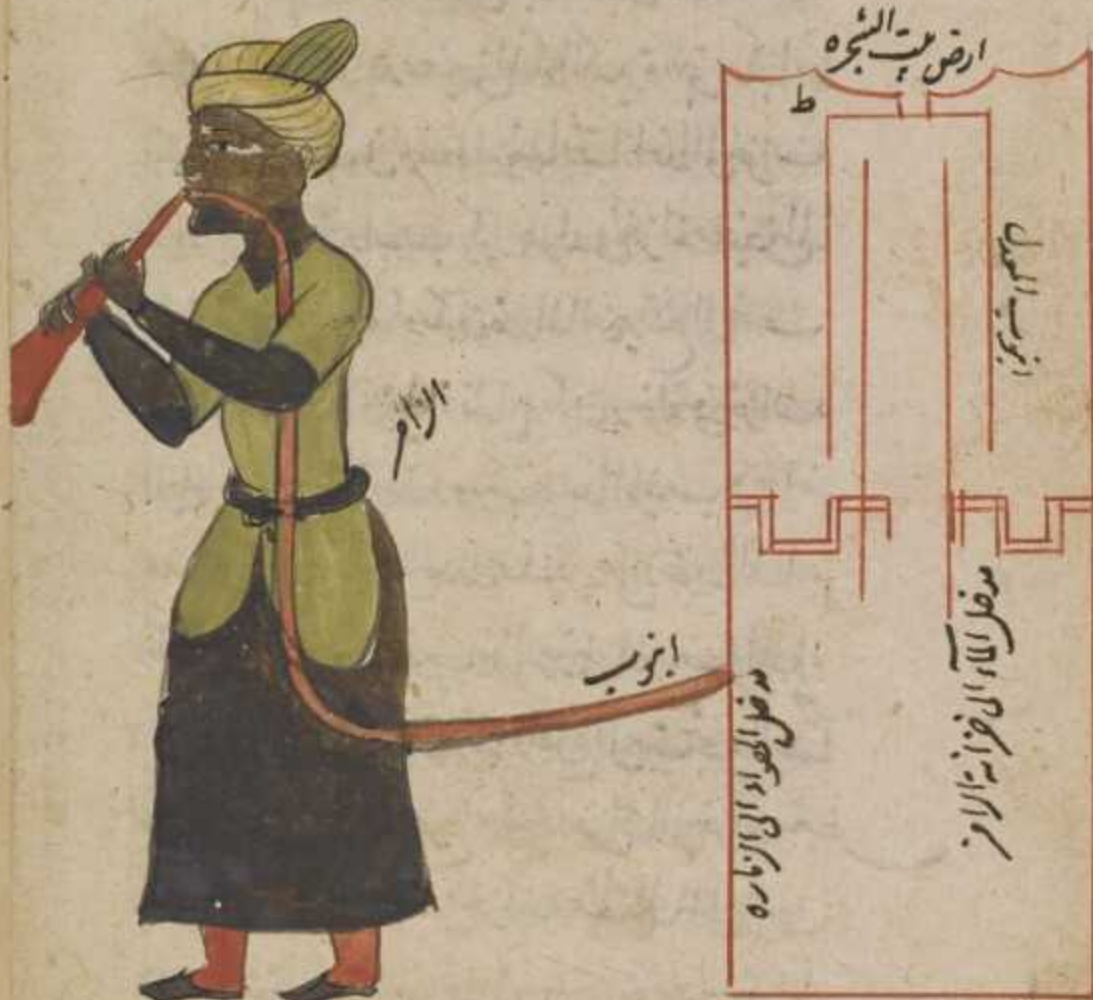 ارض بيت الشجره
ط
انبوب المعدل
الزامر
انبوب
مدخل الهواء الى الزماره
مدخل الماء الى خزانة الزامر